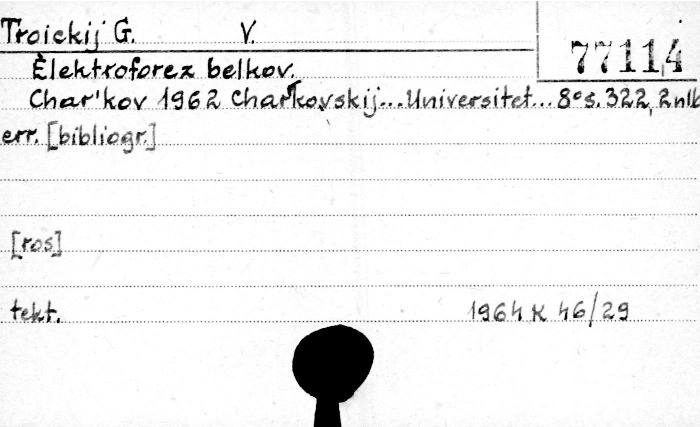 Troickij G. V.
77114
Èlektroforez belkov.
Char'kov 1962 Char'kovskij...Universitet... 8° s. 322, 2 nlb
err. [bibliogr.]
[ros]
tekt.
1964 K 46/29